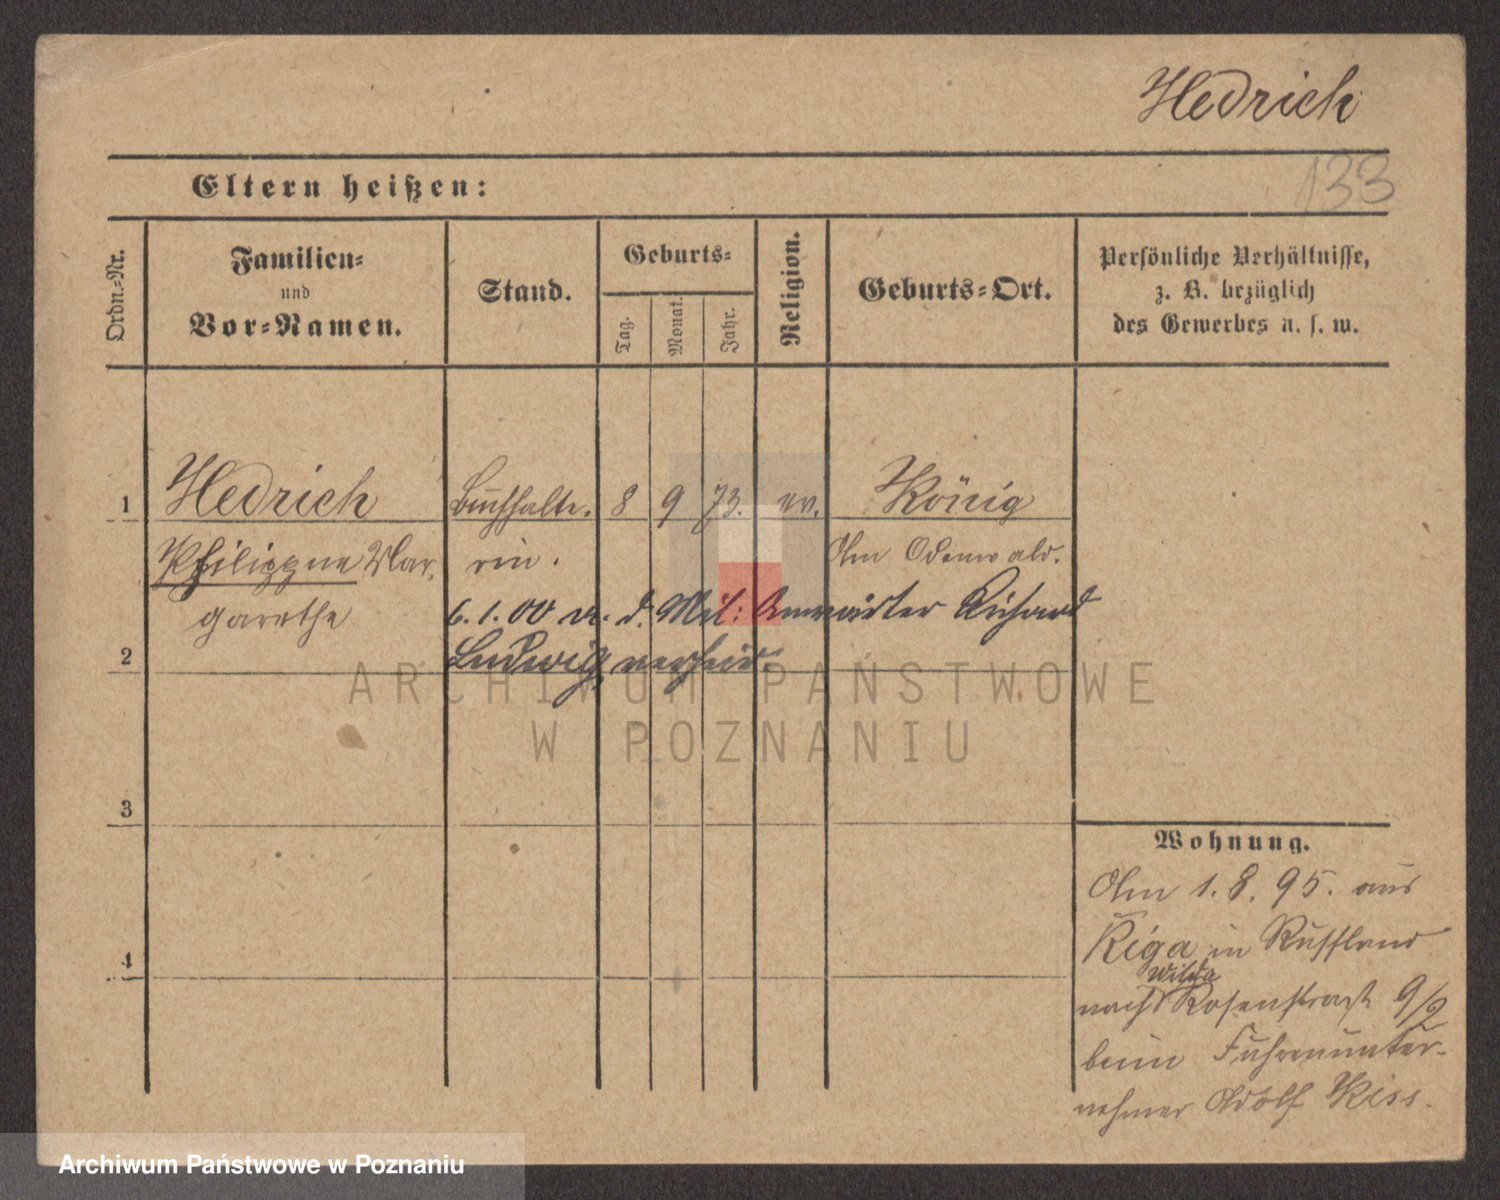 Hedrich
133
Eltern heißen:
Ordn.-Nr.
Familien-
und
Vor-Namen.
Stand.
Geburts-
Tag.
Monat.
Jahr.
Religion.
Geburts-Ort.
Persönliche Verhältnisse,
z. B. bezüglich
des Gewerbes u. s. w.
1 Hedrich Buchhalte- 8 9 73. ev. König
Philippine Mar- rin. Im Odenwald.
garethe 6.1.00 m. d. Mil: Anwärter Richard
2 Ludwig verheir.
3
4
Wohnung.
Am 1. 8. 95. aus
Riga in Russland
Wilda
nach Rosenstraße 9/2
beim Fuhrenunter-
nehmer Adolf Kiss.
ARCHIWUM PAŃSTWOWE
W POZNANIU
Archiwum Państwowe w Poznaniu